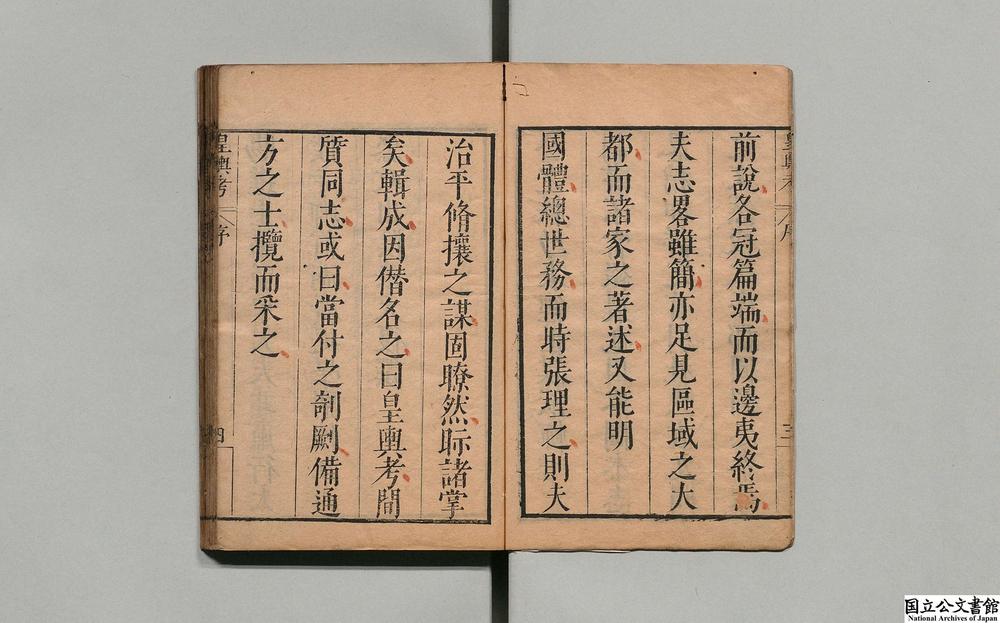 前說各冠篇端而以邊夷終焉
夫志畧雖簡亦足見區域之大
都而諸家之著述又能明
國體總世務而時張理之則夫
治平脩攘之謀固瞭然眎諸掌
矣輯成因僭名之曰皇輿考間
質同志或曰當付之剞劂備通
方之士攬而采之
皇輿考
序
四
国立公文書館
National Archives of Japan